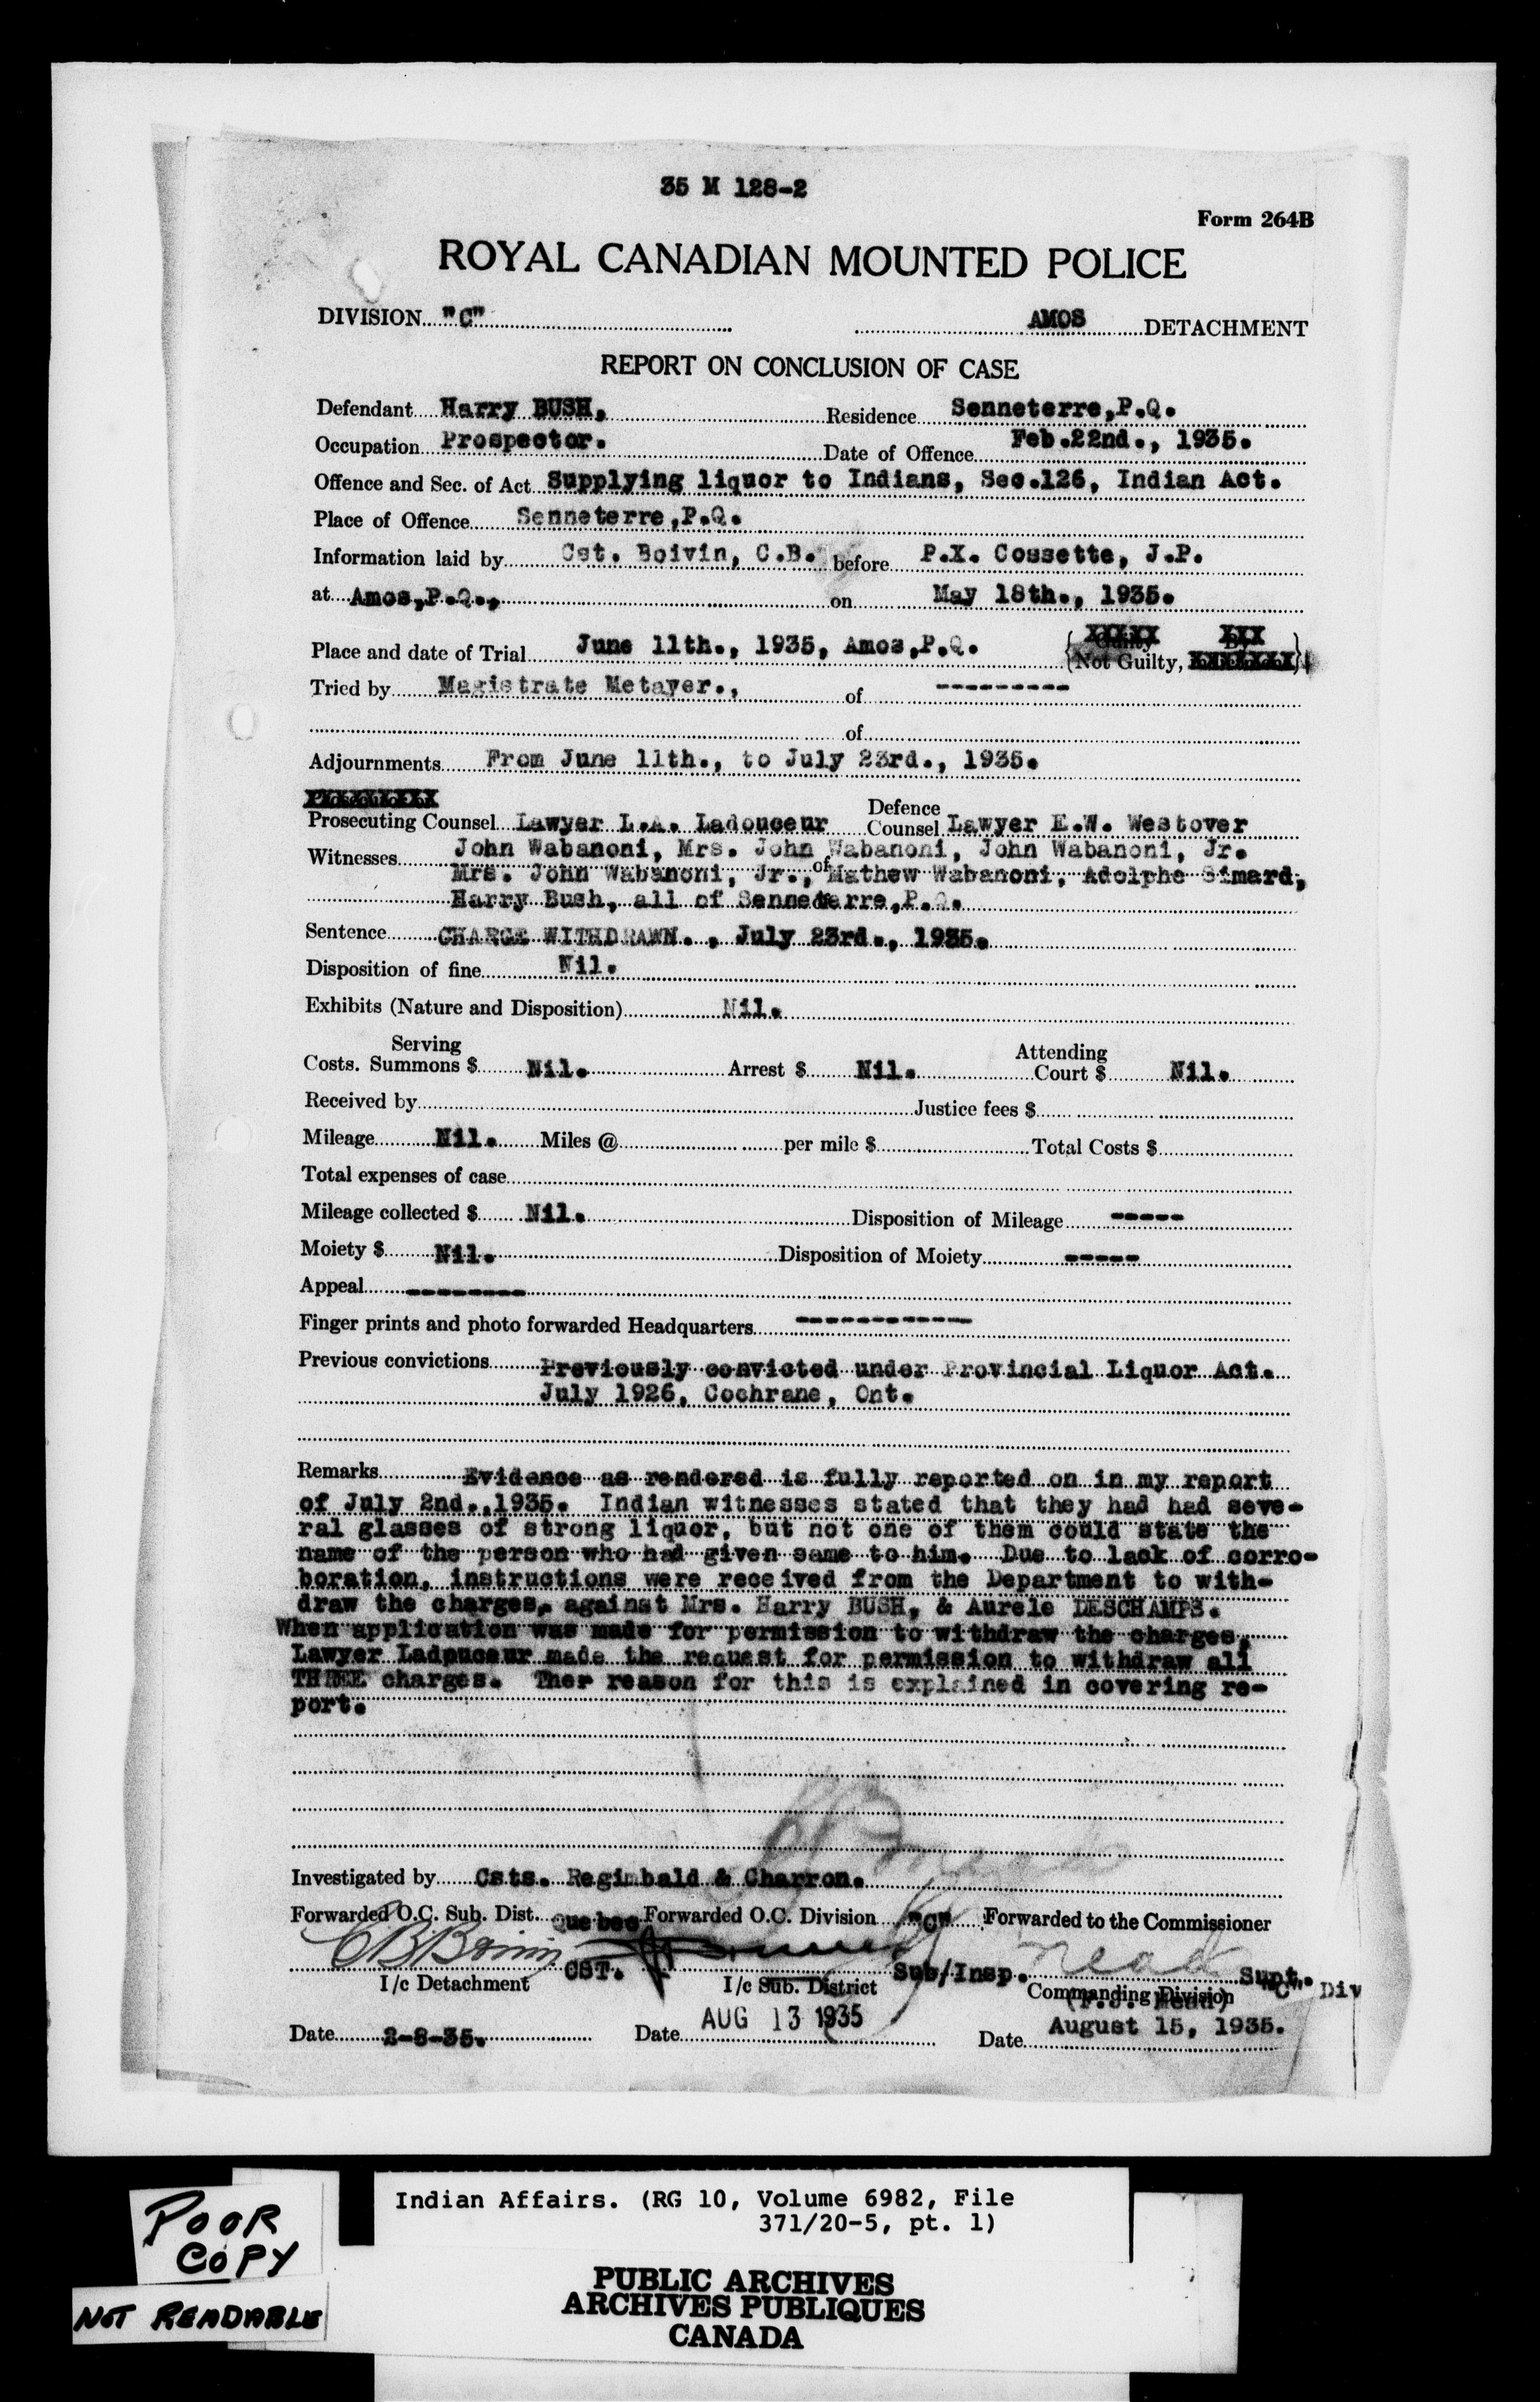 35 M 128-2
Form 264B
ROYAL CANADIAN MOUNTED POLICE
DIVISION "C" AMOS DETACHMENT
REPORT ON CONCLUSION OF CASE
Defendant Harry BUSH, Residence Senneterre,P.Q.
Occupation Prospector. Date of Offence Feb.22nd., 1935.
Offence and Sec. of Act Supplying liquor to Indians, Sec.126, Indian Act.
Place of Offence Senneterre,P.Q.
Information laid by Cst. Boivin, C.B. before P.X. Cossette, J.P.
at Amos,P.Q., on May 18th., 1935.
Place and date of Trial June 11th., 1935, Amos,P.Q. Guilty By
Not Guilty,
Tried by Magistrate Metayer., of ---------
of
Adjournments From June 11th., to July 23rd., 1935.
Prosecuting Counsel Lawyer L.A. Ladouceur Defence Counsel Lawyer E.W. Westover
Witnesses John Wabanoni, Mrs. John Wabanoni, John Wabanoni, Jr.
Mrs. John Wabanoni, Jr., of Mathew Wabanoni, Adolphe Simard,
Harry Bush, all of Senneterre,P.Q.
Sentence CHARGE WITHDRAWN. , July 23rd., 1935.
Disposition of fine Nil.
Exhibits (Nature and Disposition) Nil.
Serving Attending
Costs. Summons $ Nil. Arrest $ Nil. Court $ Nil.
Received by Justice fees $
Mileage Nil. Miles @ per mile $ Total Costs $
Total expenses of case
Mileage collected $ Nil. Disposition of Mileage -----
Moiety $ Nil. Disposition of Moiety -----
Appeal --------
Finger prints and photo forwarded Headquarters ------------
Previous convictions Previously convicted under Provincial Liquor Act.
July 1926, Cochrane, Ont.
Remarks Evidence as rendered is fully reported on in my report
of July 2nd.,1935. Indian witnesses stated that they had had seve-
ral glasses of strong liquor, but not one of them could state the
name of the person who had given same to him. Due to lack of corro-
boration, instructions were received from the Department to with-
draw the charges, against Mrs. Harry BUSH, & Aurele DESCHAMPS.
When application was made for permission to withdraw the charges,
Lawyer Ladouceur made the request for permission to withdraw all
THREE charges. Ther reason for this is explained in covering re-
port.
Investigated by Csts. Reginbald & Charron.
Forwarded O.C. Sub. Dist. Quebec Forwarded O.C. Division "C" Forwarded to the Commissioner
CB Boivin CST. Sub/Insp. Mead Supt.
I/c Detachment I/c Sub. District Commanding Division "C" Div
Date 2-8-35. Date AUG 13 1935 Date August 15, 1935.
Indian Affairs. (RG 10, Volume 6982, File
371/20-5, pt. 1)
POOR
COPY
NOT READABLE
PUBLIC ARCHIVES
ARCHIVES PUBLIQUES
CANADA